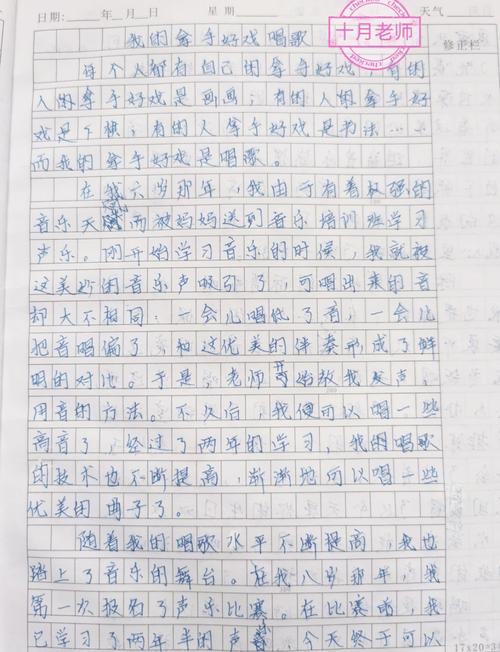 日期: 年 月 日 星期 天气
checked
十月老师
修正栏
我的拿手好戏唱歌
每个人都有自己的拿手好戏，有的
人的拿手好戏是画画；有的人的拿手好
戏是下棋；有的人拿手好戏是书法…
而我的拿手好戏是唱歌。
在我六岁那年，我由于有着极强的
音乐天赋而被妈妈送到音乐培训班学习
声乐。刚开始学习音乐的时候，我就被
这美妙的音乐声吸引了，可唱出来的音
却大不相同：一会儿唱低了音，一会儿
把音唱偏了 和这优美的伴奏形成了鲜
明的对比。于是，老师开始教我发声
用音的方法。不久后，我便可以唱一些
高音了，经过了两年的学习，我的唱歌
的技术也不断提高，渐渐地可以唱一些
优美的曲子了。
随着我的唱歌水平不断提高，我也
踏上了音乐的舞台。在我八岁那年，我
第一次报名了声乐比赛。在比赛前，我
已学习了两年半的声音，今天终于可以
17×20=3